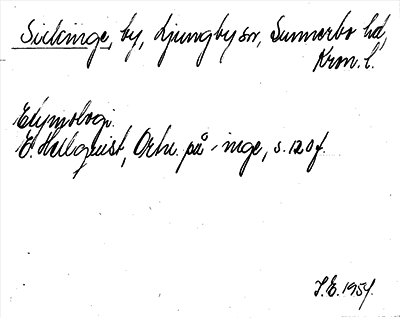 Sickinge, by, Ljungby sn, Sunnerbo hd,
Kron. l.
Etymologi.
E. Hellquist, Ortn. på -inge, s. 120 f.
S.E. 1954.